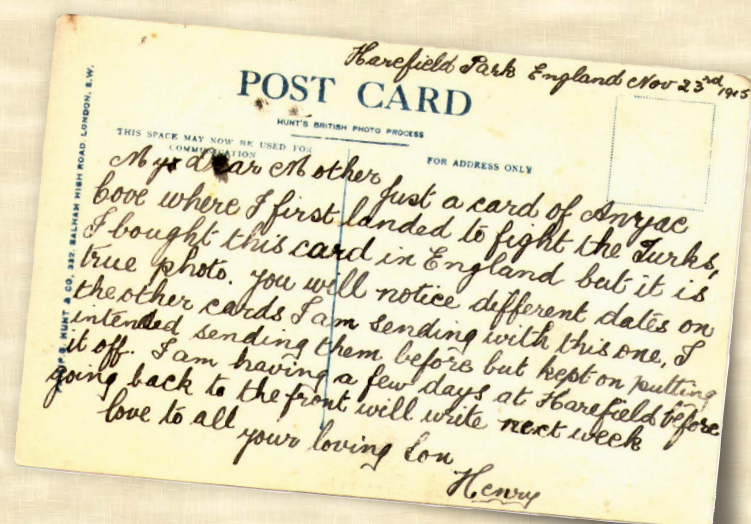 Harefield Park England Nov 23rd 1915
POST CARD
HUNT'S BRITISH PHOTO PROCESS
THIS SPACE MAY NOW BE USED FOR
COMMUNICATION
FOR ADDRESS ONLY
My dear Mother
Just a card of Anzac
Cove where I first landed to fight the Turks,
I bought this card in England but it is
true photo. You will notice different dates on
the other cards I am sending with this one, I
intended sending them before but kept on putting
it off. I am having a few days at Harefield before
going back to the front will write next week
love to all
your loving Son
Henry
HUNT & CO, 332, BALHAM HIGH ROAD, LONDON, S.W.